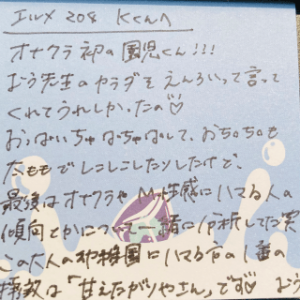 エルメ 208 Kくんへ
オナクラ初の園児くん!!!
むう先生のカラダをえんろいって言って
くれてうれしかったの♡
おっぱいちゅぱちゅぱして、おち○ち○も
太ももでしこしこしたりしたけど、
最後はオナクラやM性感にハマる人の
傾向とかについて一緒に分析してた笑
この大人の幼稚園にハマる方の1番の
特徴は「甘えたがりやさん」です♡